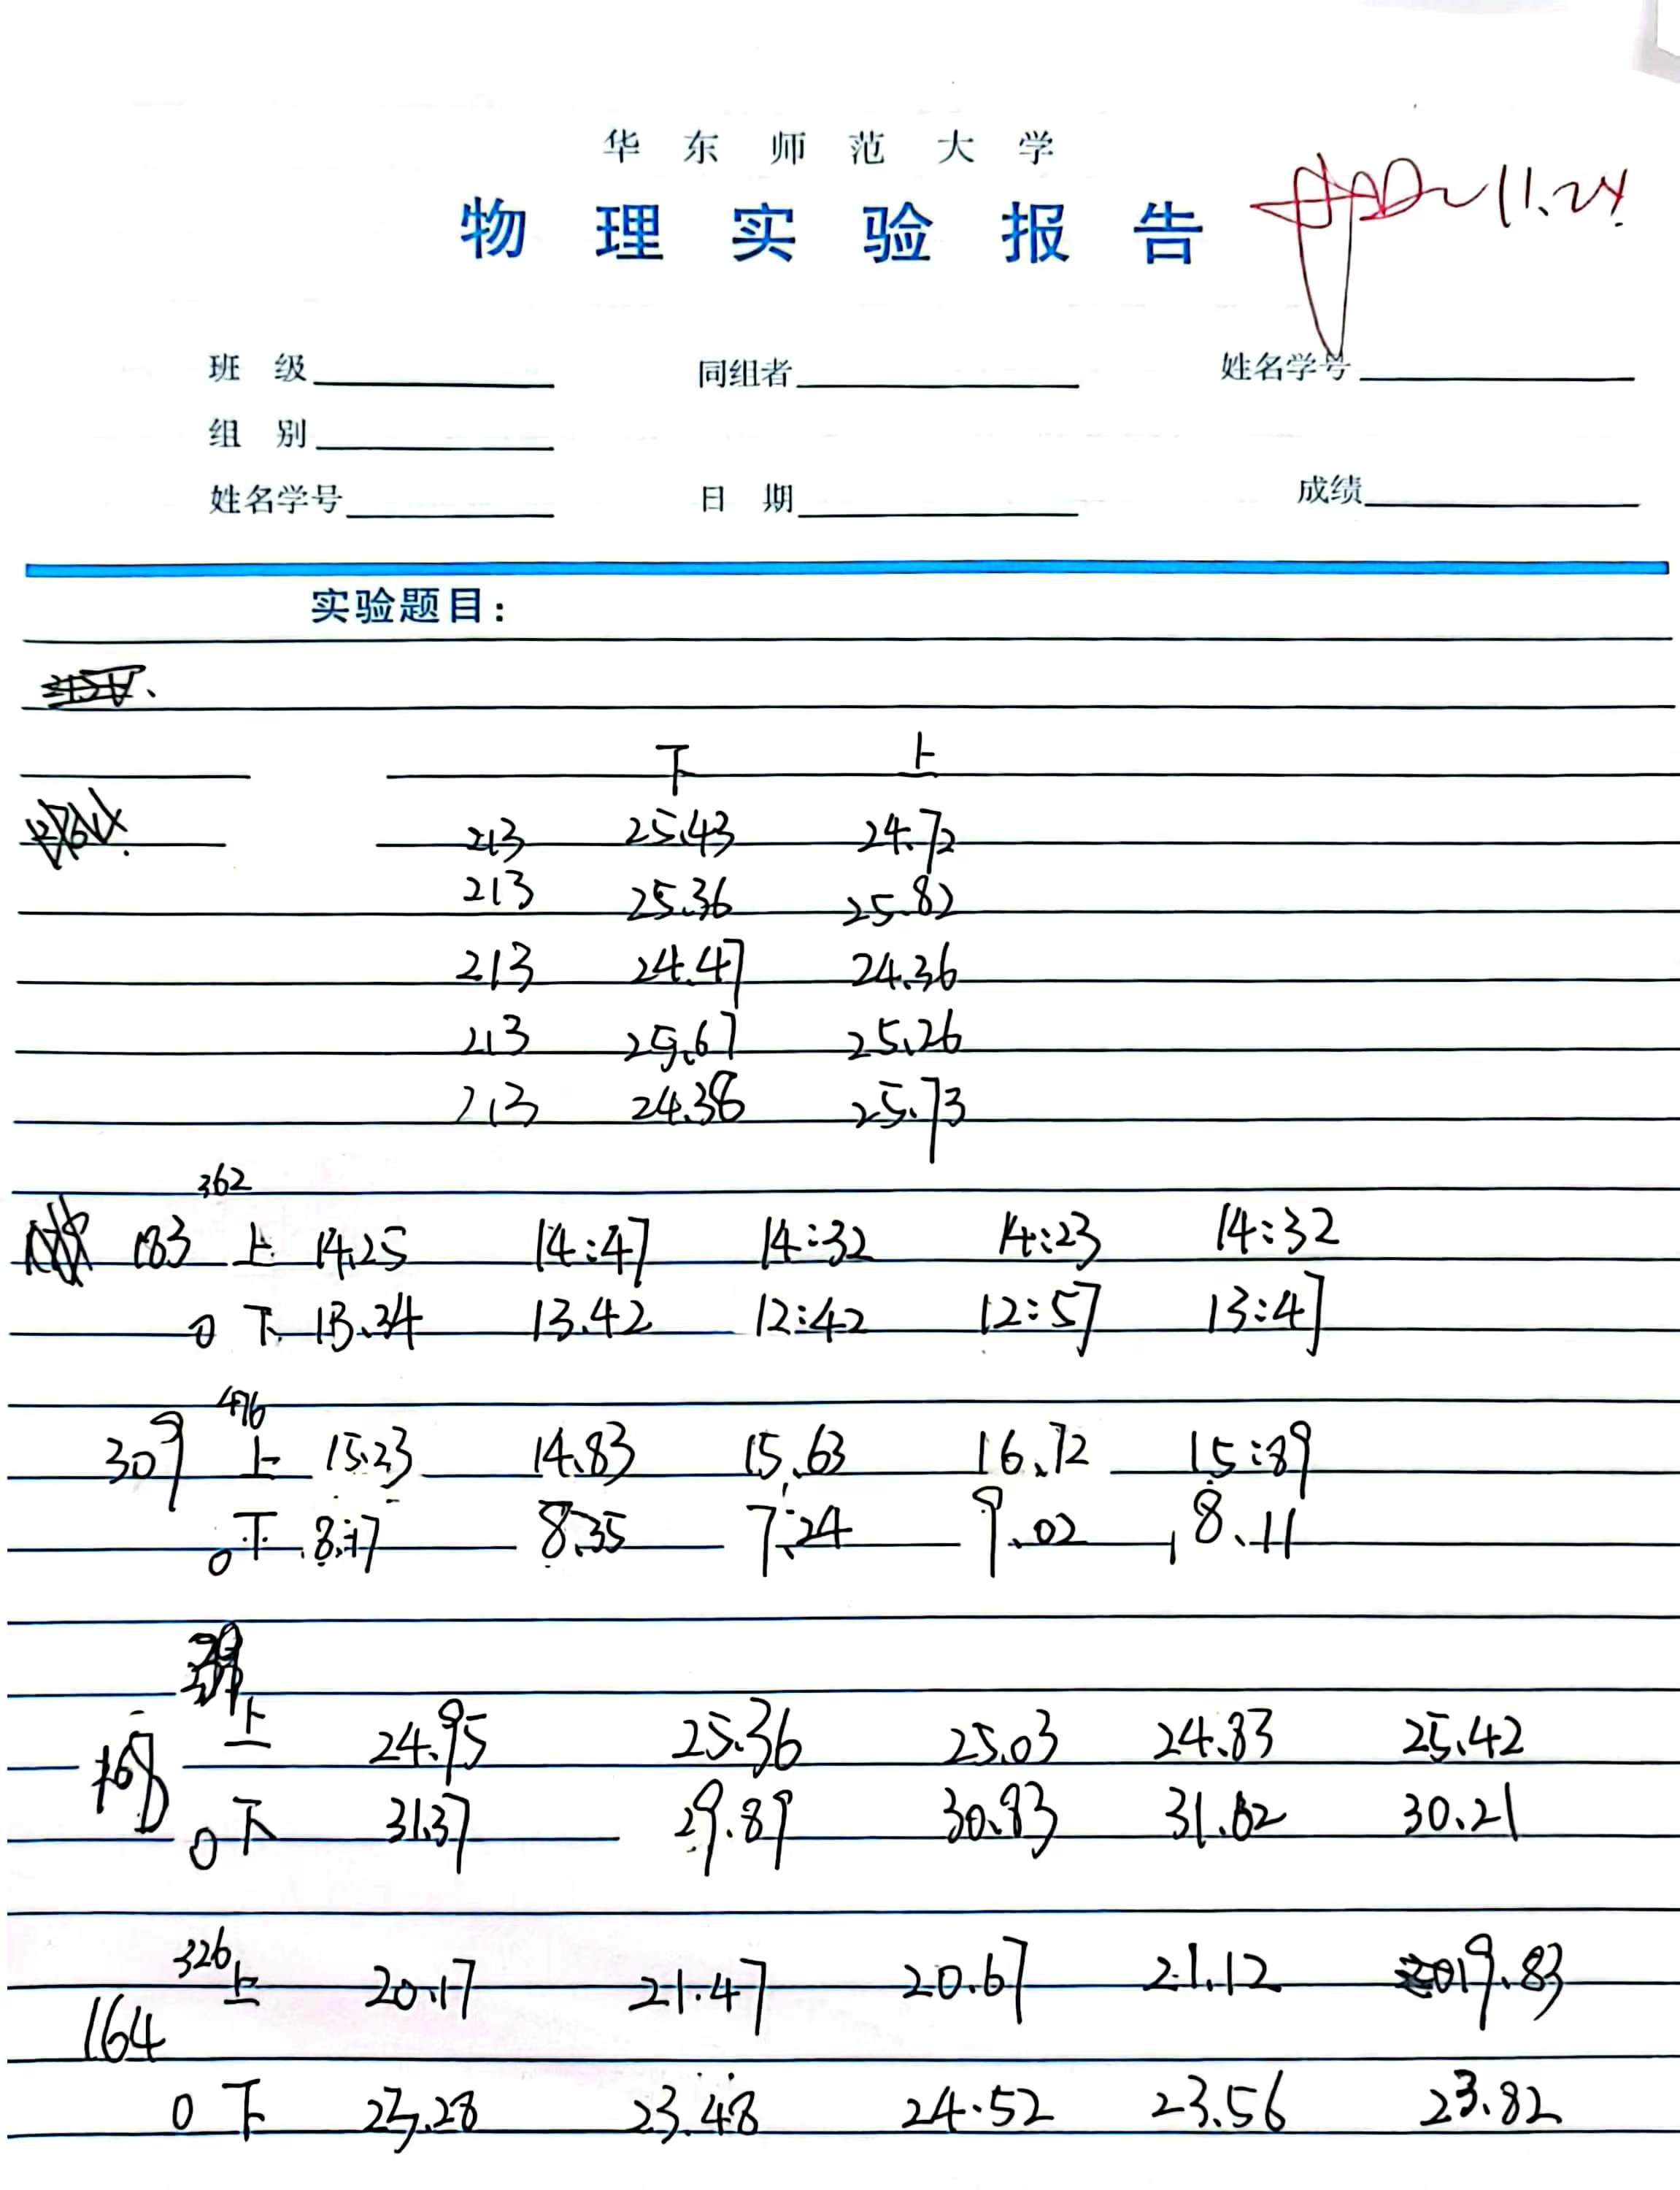 华东师范大学
物理实验报告
11.24
班 级 同组者 姓名学号
组 别
姓名学号 日 期 成绩
实验题目：
下 上
213 25.43 24.72
213 25.36 25.82
213 24.47 24.36
213 25.67 25.26
213 24.38 25.73
362
183 上 14.25 14:47 14:32 14:23 14:32
0 下 13.34 13.42 12:42 12:57 13:47
476
309 上 15.23 14.83 15.63 16.72 15:89
0 下 8.17 8.35 7.24 9.02 8.11
上 24.95 25.36 25.03 24.83 25.42
0 下 31.37 29.89 30.83 31.62 30.21
326
上 20.17 21.47 20.67 21.12 19.83
164
0 下 23.28 23.48 24.52 23.56 23.82